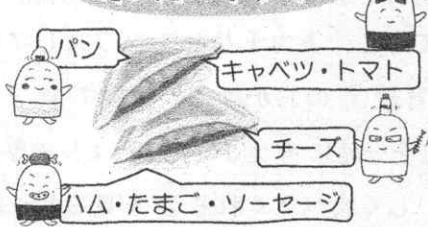 パン
キャベツ・トマト
チーズ
ハム・たまご・ソーセージ